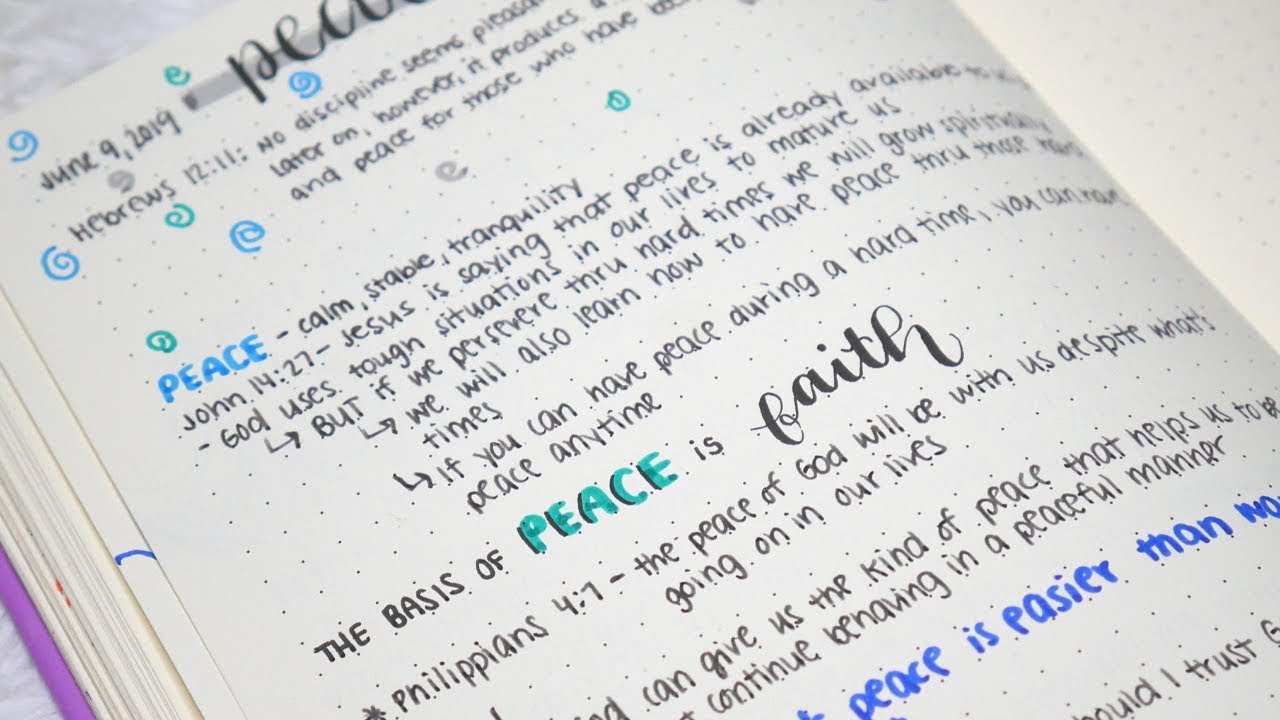 June 9, 2019
Hebrews 12:11: No discipline seems
later on, however, it produces a
and peace for those who have been
PEACE - calm, stable, tranquility
John 14:27 - Jesus is saying that peace is already available to
- God uses tough situations in our lives to mature us
↳ BUT if we persevere thru hard times we will grow spiritually
↳ we will also learn how to have peace thru those
times
↳ If you can have peace during a hard time, you can have
peace anytime
THE BASIS OF PEACE is faith
* Philippians 4:7 - the peace of God will be with us despite what's
going on in our lives
can give us the kind of peace that helps us to be
continue behaving in a peaceful manner
peace is easier than
should I trust